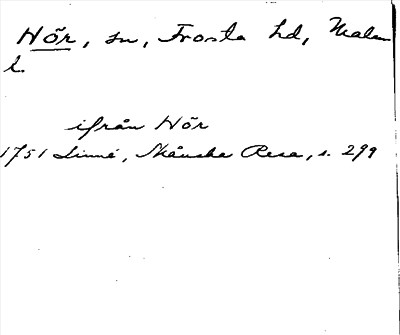 Hör, sn, Frosta hd, Malm
l.
ifrån Hör
1751 Linné, Skånska Resa, s. 299